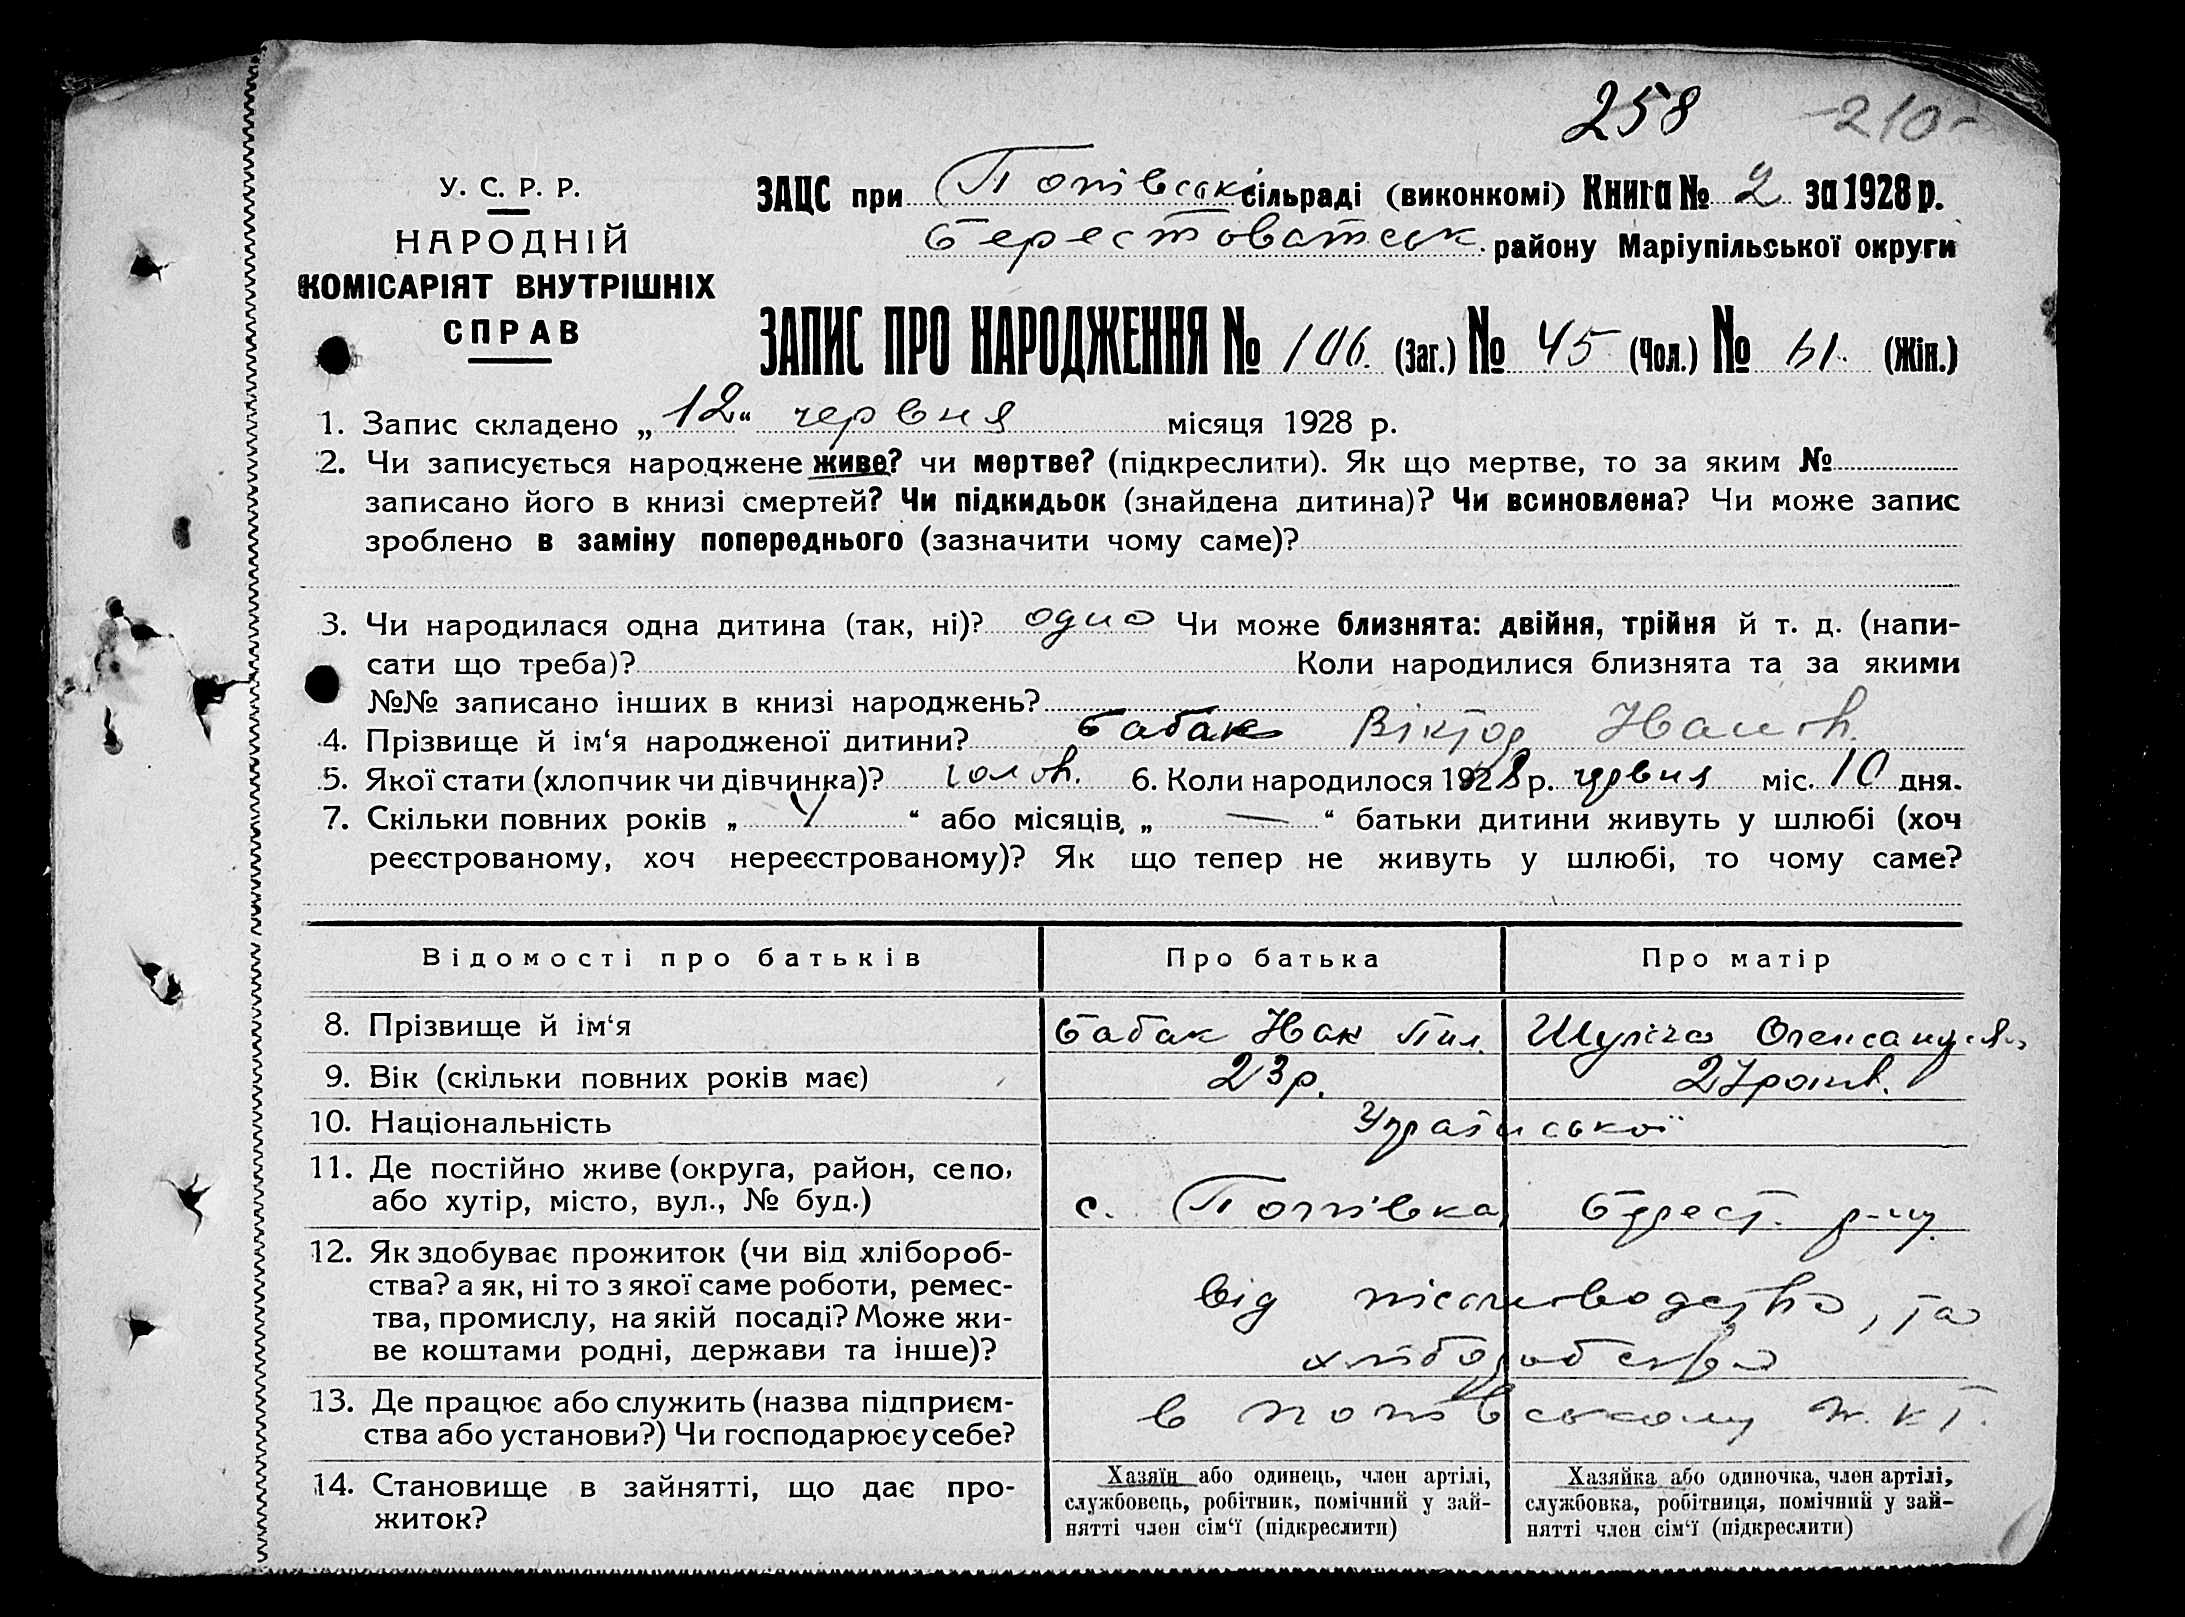 258 -210-
У. С. Р. Р.
НАРОДНІЙ
КОМІСАРІЯТ ВНУТРІШНІХ
СПРАВ
ЗАЦС при Попівські сільраді (виконкомі) Книга № 2 за 1928 р.
Берестоватськ. району Маріупільської округи
ЗАПИС ПРО НАРОДЖЕННЯ № 106. (Заг.) № 45 (Чол.) № 61. (Жін.)
1. Запис складено „ 12 “ червня місяця 1928 р.
2. Чи записується народжене живе? чи мертве? (підкреслити). Як що мертве, то за яким №
записано його в книзі смертей? Чи підкидьок (знайдена дитина)? Чи всиновлена? Чи може запис
зроблено в заміну попереднього (зазначити чому саме)?
3. Чи народилася одна дитина (так, ні)? одно Чи може близнята: двійня, трійня й т. д. (напи-
сати що треба)? Коли народилися близнята та за якими
№№ записано інших в книзі народжень?
4. Прізвище й ім‘я народженої дитини? Бабак Віктор Иванов.
5. Якої стати (хлопчик чи дівчинка)? чолов. 6. Коли народилося 1928 р. червня міс. 10 дня.
7. Скільки повних років „ 4 “ або місяців, „ — “ батьки дитини живуть у шлюбі (хоч
реєстрованому, хоч нереєстрованому)? Як що тепер не живуть у шлюбі, то чому саме?
Відомості про батьків Про батька Про матір
8. Прізвище й ім‘я Бабак Иван Пил. Шуліча Олександ.
9. Вік (скільки повних років має) 23 р. 27 років.
10. Національність Української
11. Де постійно живе (округа, район, село,
або хутір, місто, вул., № буд.) с. Попівка Берест. р-ну.
12. Як здобуває прожиток (чи від хлібороб-
ства? а як, ні то з якої саме роботи, ремес-
тва, промислу, на якій посаді? Може жи-
ве коштами родні, держави та інше)?
від , та
хліборобства
13. Де працює або служить (назва підприєм-
ства або установи?) Чи господарює у себе?
в попівському
14. Становище в зайнятті, що дає про-
житок?
Хазяїн або одинець, член артілі,
службовець, робітник, помічний у зай-
нятті член сім‘ї (підкреслити)
Хазяйка або одиночка, член артілі,
службовка, робітниця, помічний у зай-
нятті член сім‘ї (підкреслити)